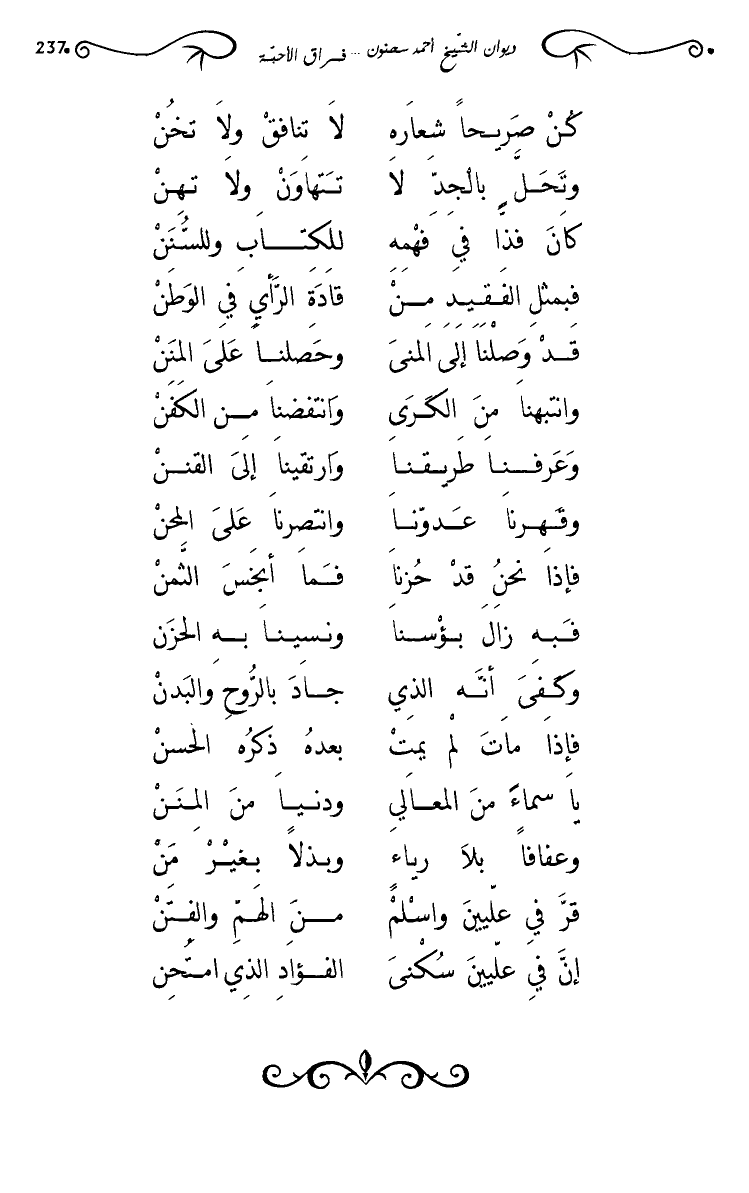 ديوان الشّيخ أحمد سحنون ... فراق الأحبّة 237
كُنْ صَرِيحاً شعاره لاَ تنافقْ ولاَ تخُنْ
وتَحَلَّ بالْجِدِّ لاَ تَتَهاوَنْ ولاَ تهِنْ
كانَ فذا فِي فهْمِهِ للكِتَابِ وللسُّنَنْ
فبمثلِ الفَقِيدِ مِنْ قادَةِ الرَّأيِ فِي الوَطنْ
قَدْ وَصلْنا إلى المنىَ وحَصلنا عَلىَ المِنَنْ
وانتبهنا منَ الكَرَى وَانْتفضنا مِن الكفَنْ
وَعَرفنا طَرِيقنا وَارتقينا إلىَ القننْ
وقَهرنا عَدوّنا وانتصرنا عَلىَ المِحنْ
فإذا نحنُ قدْ حُزنا فَما أبْخَسَ الثَّمنْ
فَبِهِ زالَ بؤْسنا ونسينا بِهِ الحَزَن
وكَفىَ أنَّه الذي جادَ بالرُّوحِ والبَدنْ
فإذا ماتَ لَمْ يمتْ بعدهُ ذكرُه الحَسنْ
يا سماءً منَ المعالِي ودنيا منَ المِنَنْ
وعفافاً بلاَ رياء وبذلاً بغيْرْ مَنْ
قرَّ فِي علِّيينَ واسْلمْ مِنَ الهمِّ والفِتَنْ
إنَّ فِي علِّيينَ سُكْنىَ الفُؤادِ الذِي امتُحِن